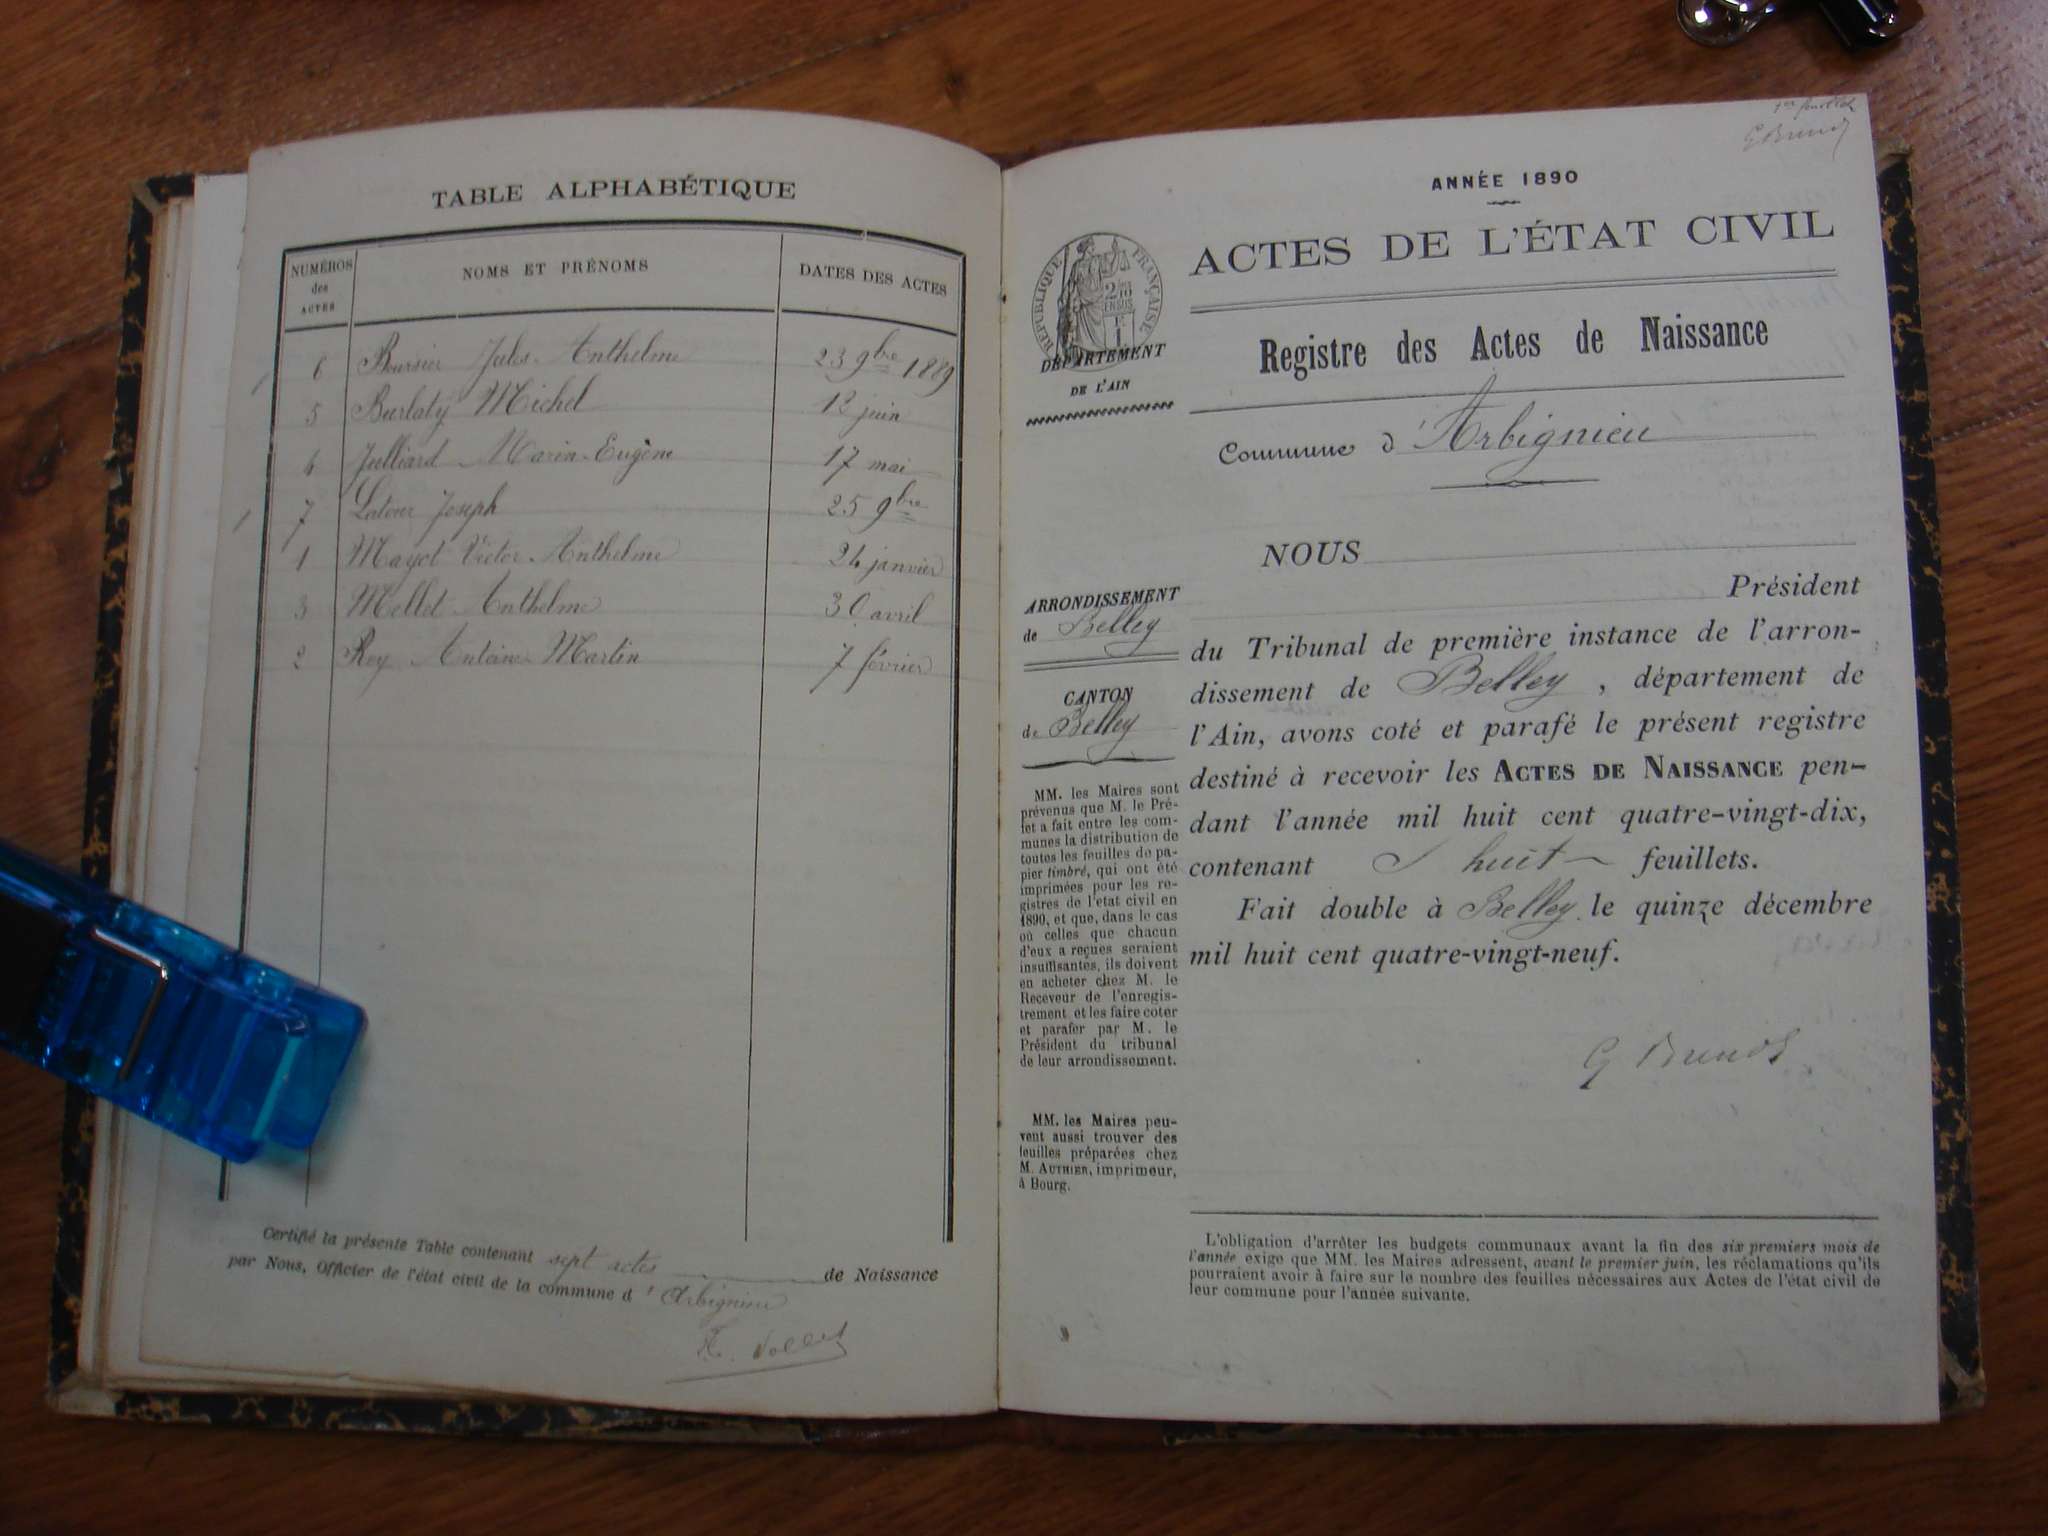 TABLE ALPHABÉTIQUE
NUMÉROS des ACTES
NOMS ET PRÉNOMS
DATES DES ACTES
6 Boursier Jules Anthelme 23 9bre 1889
5 Burlaty Michel 12 juin
4 Julliard Marin Eugène 17 mai
7 Latour Joseph 25 9bre
1 Mayot Victor Anthelme 24 janvier
3 Mellet Anthelme 30 avril
2 Rey Antoine Martin 7 février
Certifié la présente Table contenant sept actes de Naissance
par Nous, Officier de l'état civil de la commune d' Arbignieu
ANNÉE 1890
ACTES DE L'ÉTAT CIVIL
RÉPUBLIQUE FRANÇAISE
2/10 EN SUS
DÉPARTEMENT
DE L'AIN
Registre des Actes de Naissance
Commune d'Arbignieu
NOUS
Président
ARRONDISSEMENT
de Belley
CANTON
de Belley
du Tribunal de première instance de l'arron-
dissement de Belley, département de
l'Ain, avons coté et parafé le présent registre
destiné à recevoir les ACTES DE NAISSANCE pen-
dant l'année mil huit cent quatre-vingt-dix,
contenant huit feuillets.
Fait double à Belley le quinze décembre
mil huit cent quatre-vingt-neuf.
MM. les Maires sont
prévenus que M. le Pré-
fet a fait entre les com-
munes la distribution de
toutes les feuilles de pa-
pier timbré, qui ont été
imprimées pour les re-
gistres de l'état civil en
1890, et que, dans le cas
où celles que chacun
d'eux a reçues seraient
insuffisantes, ils doivent
en acheter chez M. le
Receveur de l'enregis-
trement et les faire coter
et parafer par M. le
Président du tribunal
de leur arrondissement.
MM. les Maires peu-
vent aussi trouver des
feuilles préparées chez
M. AUTHIER, imprimeur,
à Bourg.
L'obligation d'arrêter les budgets communaux avant la fin des six premiers mois de
l'année exige que MM. les Maires adressent, avant le premier juin, les réclamations qu'ils
pourraient avoir à faire sur le nombre des feuilles nécessaires aux Actes de l'état civil de
leur commune pour l'année suivante.